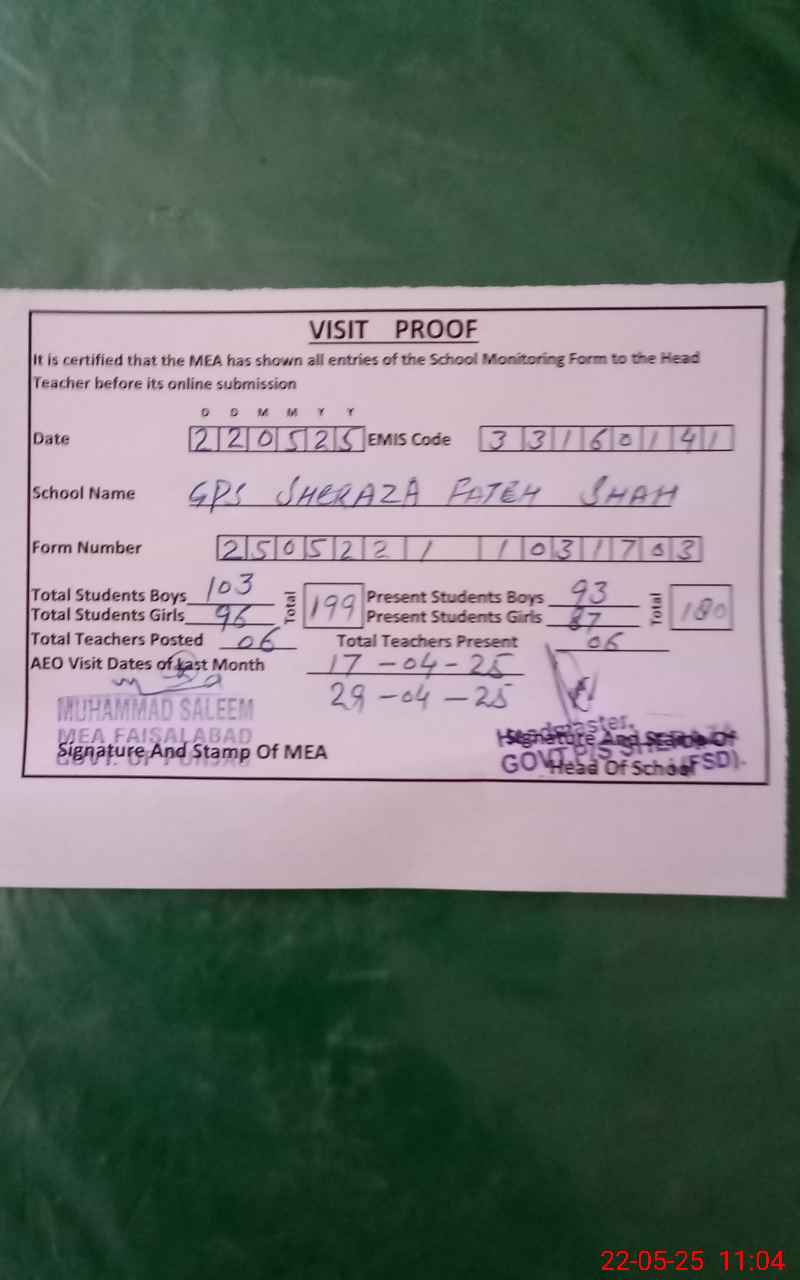 VISIT PROOF
It is certified that the MEA has shown all entries of the School Monitoring Form to the Head
Teacher before its online submission
D D M M Y Y
Date 220525 EMIS Code 33160141
School Name GPS SHERAZA FATEH SHAH
Form Number 2505221 1031703
Total Students Boys 103 Total 199 Present Students Boys 93 Total 180
Total Students Girls 96 Present Students Girls 87
Total Teachers Posted 06 Total Teachers Present 06
AEO Visit Dates of Last Month 17-04-25
29-04-25
MUHAMMAD SALEEM
MEA FAISALABAD
GOVT. OF PUNJAB
Signature And Stamp Of MEA
Headmaster,
Signature And Stamp Of
GOVT P/S (FSD).
Head Of School
22-05-25 11:04